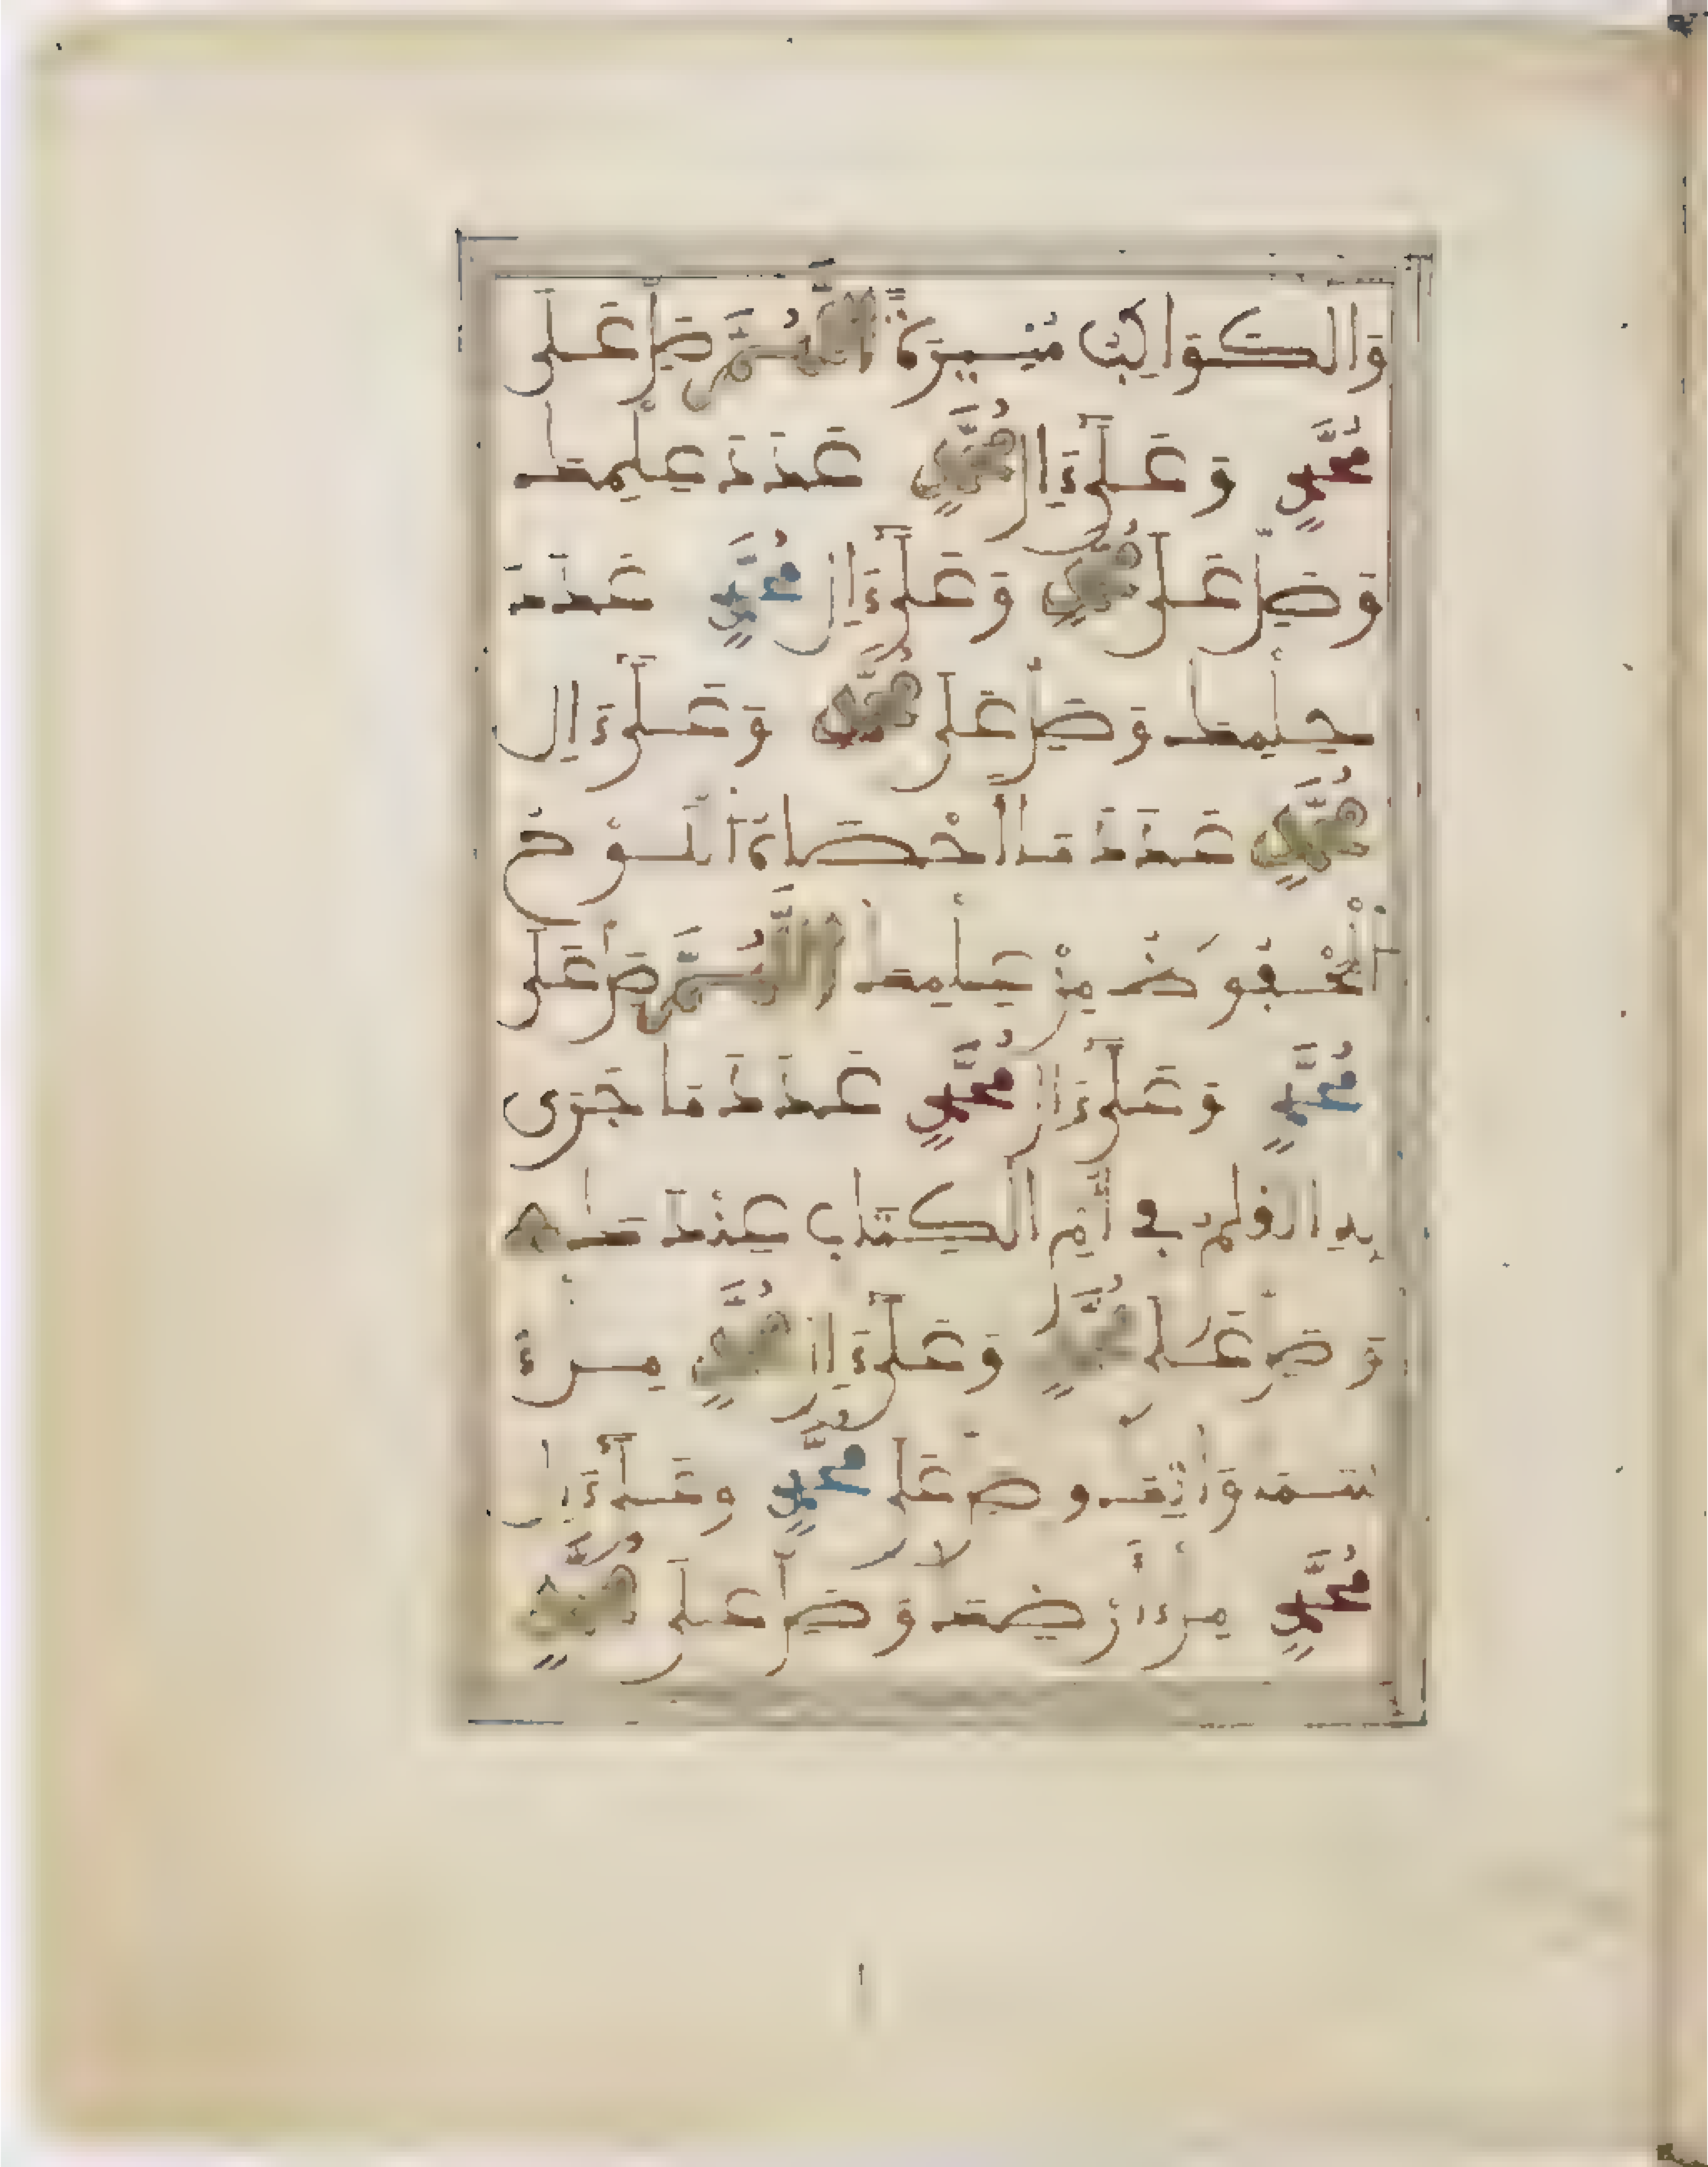 وَالْكَوَاكِبُ مُنِيرَةً اللَّهُمَّ صَلِّ عَلَى
مُحَمَّدٍ وَعَلَى ءَالِ مُحَمَّدٍ عَدَدَ عِلْمِكَ
وَصَلِّ عَلَى مُحَمَّدٍ وَعَلَى ءَالِ مُحَمَّدٍ عَدَدَ
حِلْمِكَ وَصَلِّ عَلَى مُحَمَّدٍ وَعَلَى ءَالِ
مُحَمَّدٍ عَدَدَ مَا أَحْصَاهُ اللَّوْحُ
الْمَحْفُوظُ مِنْ عِلْمِكَ اللَّهُمَّ صَلِّ عَلَى
مُحَمَّدٍ وَعَلَى ءَالِ مُحَمَّدٍ عَدَدَ مَا جَرَى
بِهِ الْقَلَمُ فِي أُمِّ الْكِتَابِ عِنْدَكَ
وَصَلِّ عَلَى مُحَمَّدٍ وَعَلَى ءَالِ مُحَمَّدٍ مِلْءَ
سَمَوَاتِكَ وَصَلِّ عَلَى مُحَمَّدٍ وَعَلَى ءَالِ
مُحَمَّدٍ مِلْءَ أَرْضِكَ وَصَلِّ عَلَى مُحَمَّدٍ